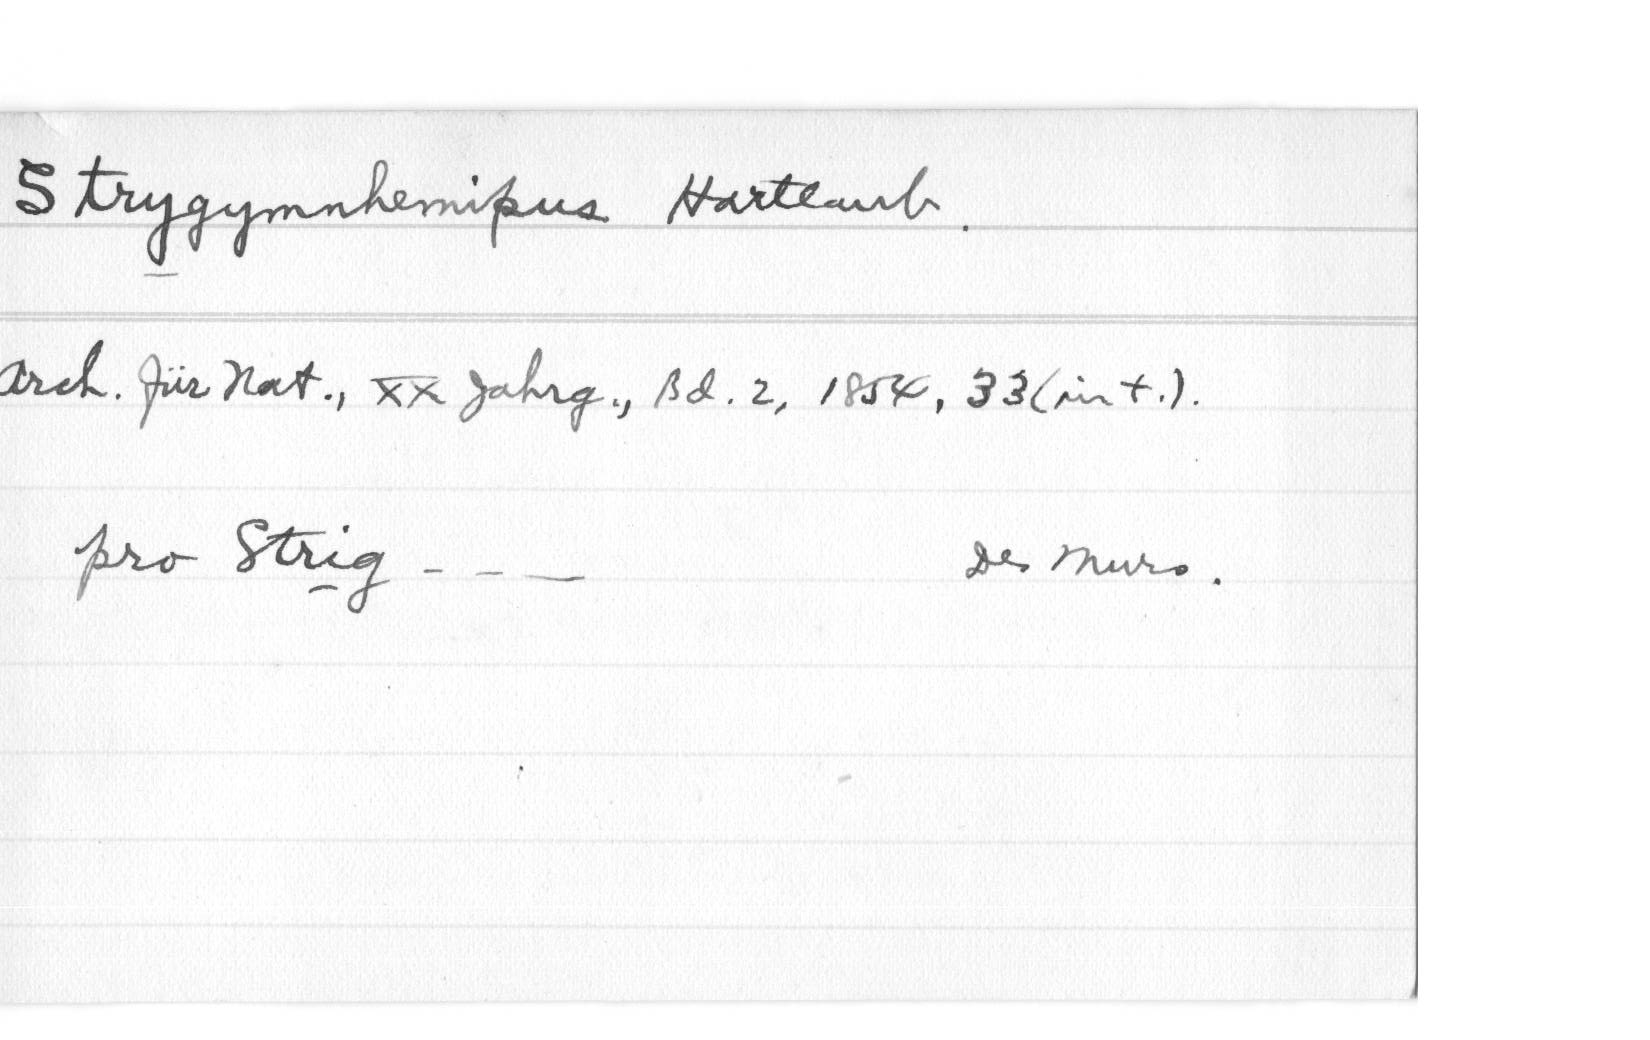 Strygymnhemipus Hartlaub.
Arch. für Nat., XX Jahrg., Bd. 2, 1854, 33 (in t.).
pro Strig - - — Des Murs.